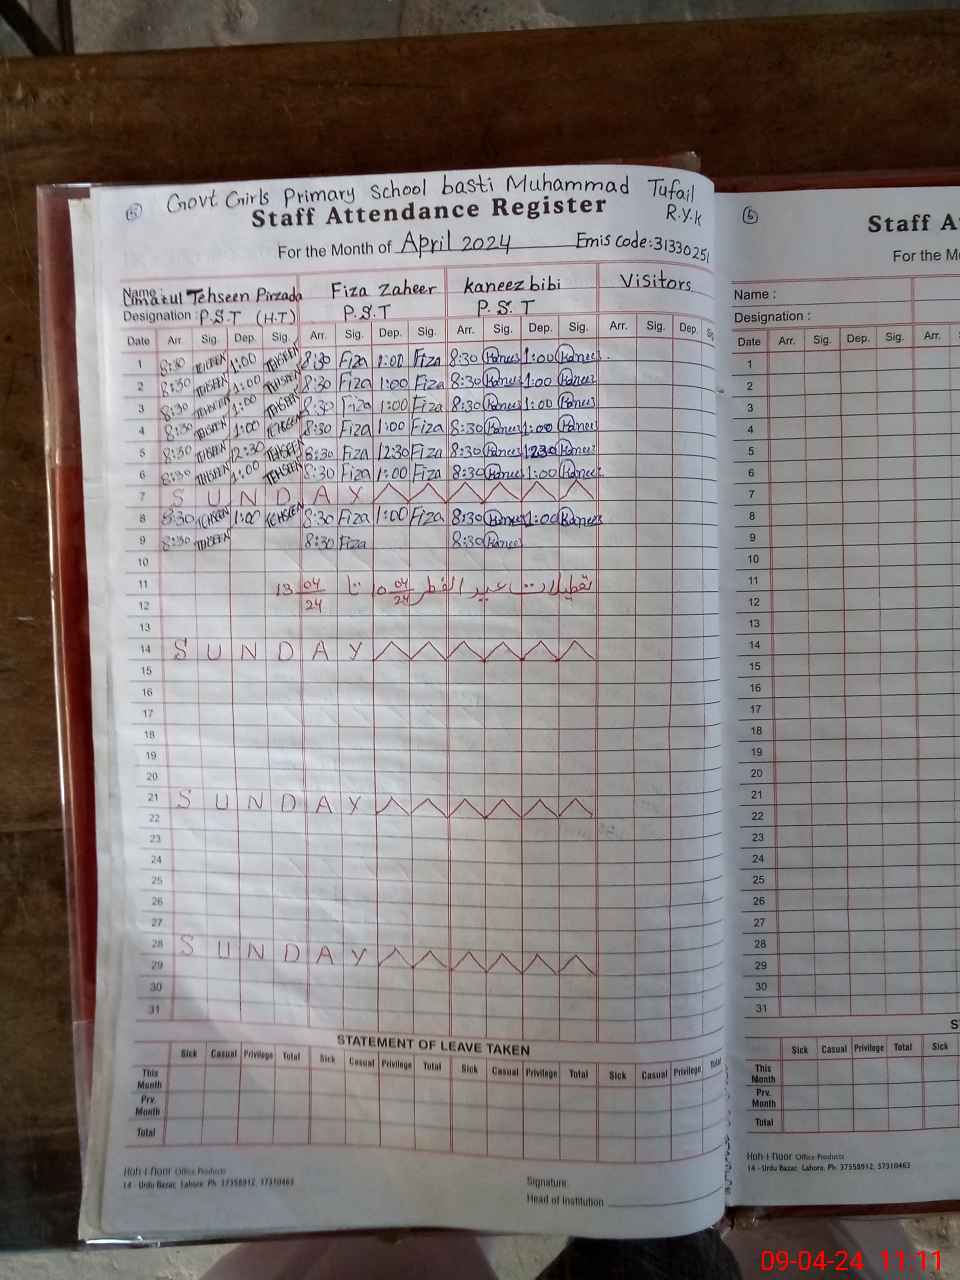 5
Govt Girls Primary School basti Muhammad Tufail
Staff Attendance Register R.Y.K
For the Month of April 2024 Emis Code:31330251
Name : Umatul Tehseen Pirzada Fiza Zaheer kaneez bibi Visitors
Designation : P.S.T (H.T) P.S.T P.S.T
Date Arr. Sig. Dep. Sig. Arr. Sig. Dep. Sig. Arr. Sig. Dep. Sig. Arr. Sig. Dep.
1 8:30 TEHSEEN 1:00 TEHSEEN 8:30 Fiza 1:00 Fiza 8:30 Kaneez 1:00 Kaneez
2 8:30 TEHSEEN 1:00 TEHSEEN 8:30 Fiza 1:00 Fiza 8:30 Kaneez 1:00 Kaneez
3 8:30 TEHSEEN 1:00 TEHSEEN 8:30 Fiza 1:00 Fiza 8:30 Kaneez 1:00 Kaneez
4 8:30 TEHSEEN 1:00 TEHSEEN 8:30 Fiza 1:00 Fiza 8:30 Kaneez 1:00 Kaneez
5 8:30 TEHSEEN 12:30 TEHSEEN 8:30 Fiza 12:30 Fiza 8:30 Kaneez 1230 Kaneez
6 8:30 TEHSEEN 1:00 TEHSEEN 8:30 Fiza 1:00 Fiza 8:30 Kaneez 1:00 Kaneez
7 S U N D A Y
8 8:30 TEHSEEN 1:00 TEHSEEN 8:30 Fiza 1:00 Fiza 8:30 Kaneez 1:00 Kaneez
9 8:30 TEHSEEN 8:30 Fiza 8:30 Kaneez
10
11 تعطیلات عید الفطر 10 04/24 تا 13 04/24
12
13
14 S U N D A Y
15
16
17
18
19
20
21 S U N D A Y
22
23
24
25
26
27
28 S U N D A Y
29
30
31
STATEMENT OF LEAVE TAKEN
Sick Casual Privilege Total Sick Casual Privilege Total Sick Casual Privilege Total Sick Casual Privilege Total
This Month
Prv. Month
Total
Hoh-i-Noor Office Products
14 - Urdu Bazar, Lahore. Ph: 37358912, 37310463
Signature
Head of Institution
6
Staff A
For the Mo
Name :
Designation :
Date Arr. Sig. Dep. Sig. Arr.
1
2
3
4
5
6
7
8
9
10
11
12
13
14
15
16
17
18
19
20
21
22
23
24
25
26
27
28
29
30
31
S
Sick Casual Privilege Total Sick
This Month
Prv. Month
Total
Hoh-i-Noor Office Products
14 - Urdu Bazar, Lahore. Ph: 37358912, 37310463
09-04-24 11:11